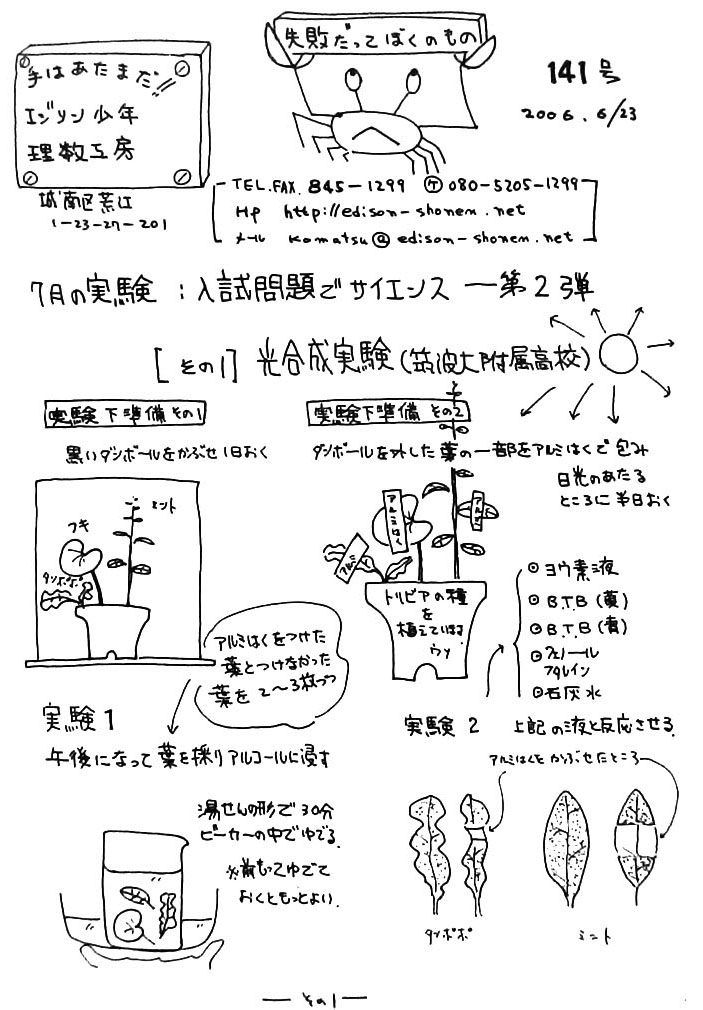 手はあたまだ!!
エジソン少年
理数工房
城南区荒江
1-23-27-201
失敗だってぼくのもの
141号
2006.6/23
TEL.FAX. 845-1299 ㋘ 080-5205-1299
HP http://edison-shonen.net
メール komatsu@edison-shonen.net
7月の実験：入試問題でサイエンス ー第2弾
[その1] 光合成実験(筑波大附属高校)
実験下準備 その1
黒いダンボールをかぶせ1日おく
ミント
フキ
タンポポ
実験下準備 その2
ダンボールを外した葉の一部をアルミはくで包み
日光のあたる
ところに半日おく
アルミはく
アルミ
アルミ
トリビアの種
を
植えています。
ウソ
⊙ヨウ素液
⊙B.T.B(黄)
⊙B.T.B(青)
⊙フェノール
フタレイン
⊙石灰水
アルミはくをつけた
葉とつけなかった
葉を2〜3枚づつ
実験1
午後になって葉を採りアルコールに浸す
湯せんの形で30分
ビーカーの中でゆでる.
※前もってゆでて
おくともっとよい.
実験2 上記の液と反応させる.
アルミはくをかぶせたところ
タンポポ
ミント
ー その1 ー